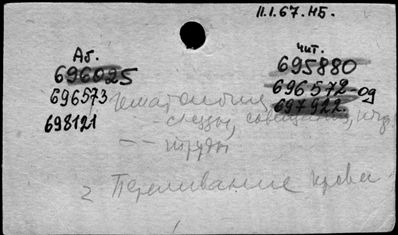 11.1.67. НБ.
Аб.
696025
696573
698121
Чит.
695880
696572-од
697922
Гематология
- съезды, совещания,
— — труды
2 Переливание крови